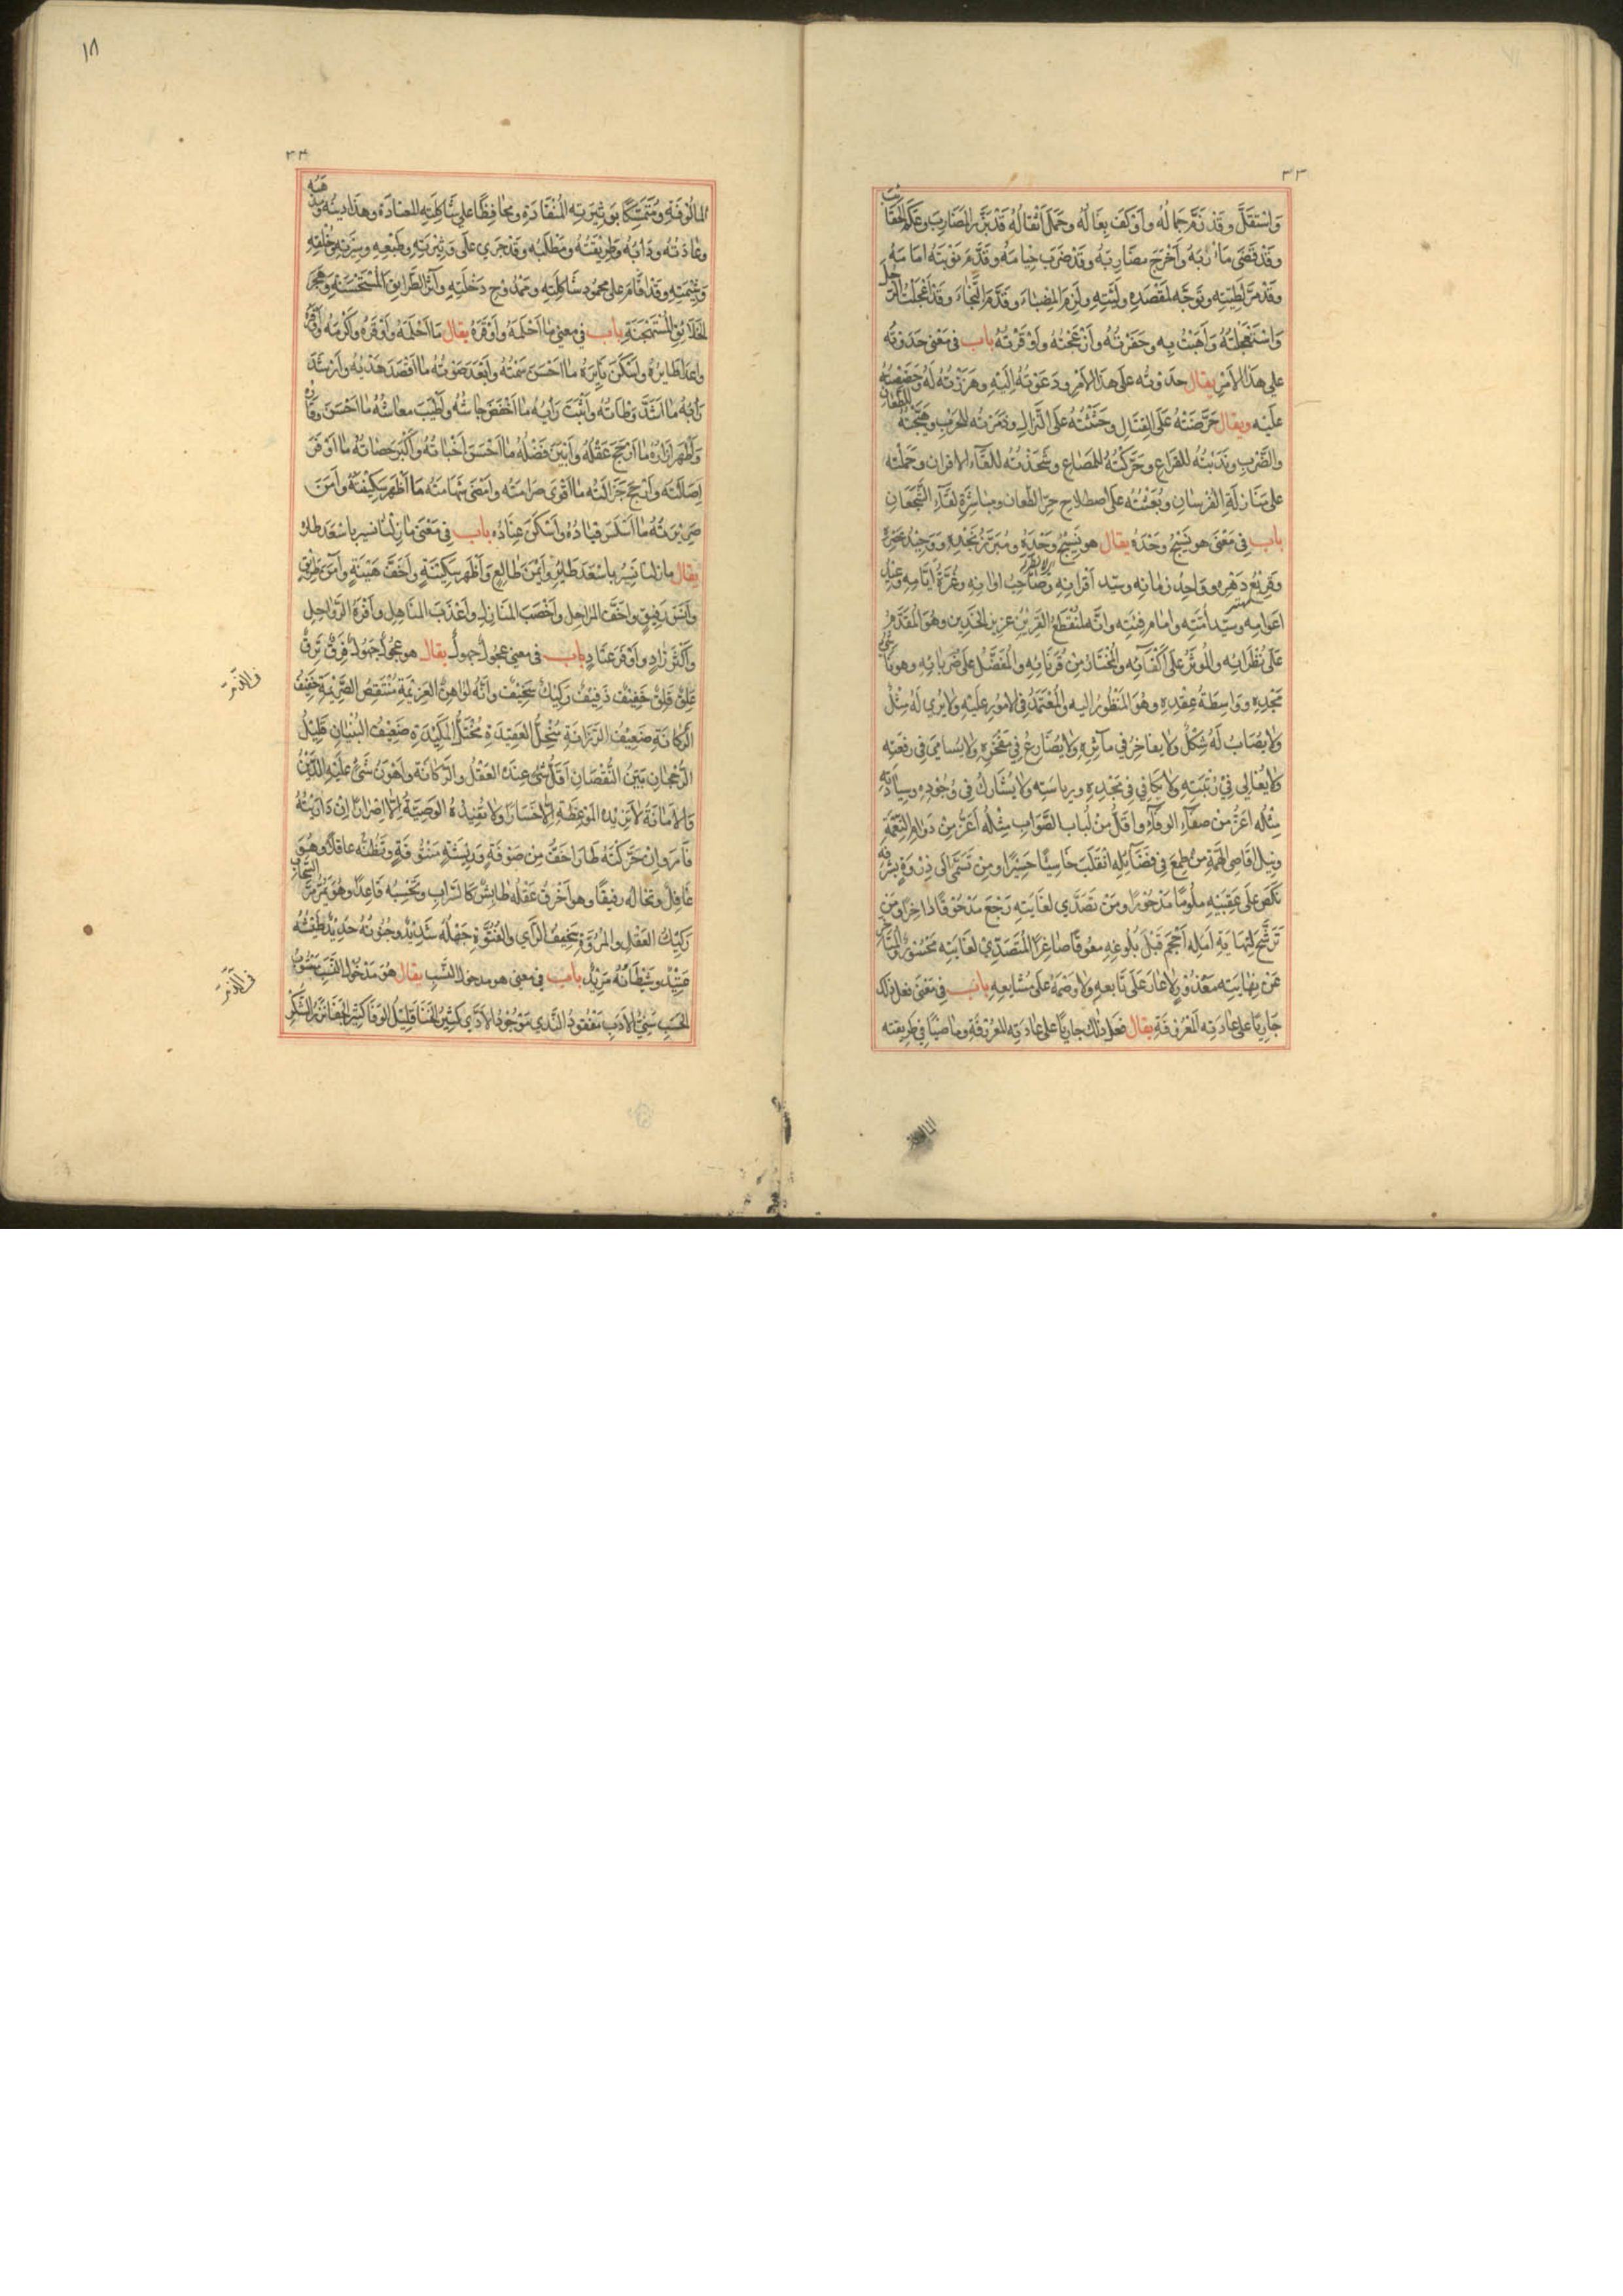 ٣٣
وَاسْتَقَلَّ وقد زَمَّ جِمالُهُ وأَوْكَفَ بِغالُهُ وحَمَلَ أَثْقالُهُ قَدْ بَرَّزَ المضَارِبَ وعَكَمَ الحَقَائِبَ
وقَدْ قَضَى مَآرُبَهُ وأَخْرَجَ مضَارِبَهُ وقَدْ ضَرَبَ خِيامَهُ وقَدَّمَ نَوْبَتَهُ أمَامَهُ
وقَدْ مَرَّ لِطِيَّتِهِ وتَوجَّه لمَقْصَدِهِ ولِنِيَّتِهِ ولَزِمَ المِضَاءَ وقَدَّمَ النَّجَاءَ وقَدْ أعْجَلتُ الرَّجُلَ
وَاسْتَعْجَلْتُهُ وَأَهَبْتُ بِهِ وحَفَزْتُهُ وأَزْعَجْتُهُ وأَوْفَزْتُهُ باب في مَعْنى حَدَوْتُه
على هذَا الأمْرِ يقال حدَوْتُه عَلَى هذَا الأمْرِ ودَعَوْتُهُ إلَيْهِ وهَزَزْتُه لَهُ وحَضَضْتُهُ
علَيْه ويقال حَرَّضْتُهُ عَلَى القِتَالِ وحَثَثْتُهُ عَلَى النِّزالِ وذمَرْتُه للحَربِ وهَيَّجْتُهُ للطِّعَانِ
والضَّرْبِ ونَدَبْتُه للقِرَاعِ وحَرَّكْتُهُ للمِصَاعِ وشَحَذْتُه للقَآء الأقران وحَمَلْتُه
على مُنَازَلَةِ الفُرسَانِ وبَعَثْتُهُ علَى اصطِلاءِ حرِّ الطعان ومباشَرَةِ لقَآءِ الشُّجْعَانِ
باب في مَعْنى هو نَسِيجُ وَحْدَه يقال هو نَسِيجُ وَحْدِهِ ومُبَرَّزُ نَجْدِهِ ووَحِيدُ عَصْرِهِ
وقَرِيْعُ دَهْرِه ووَاحِدُ زمانه وسيّد أقرانِه وصَاحِبُ أوانِهِ وغُرَّةُ أيّامِهِ وعَيْنُ
أعوامِه وسيّد أمّتِهِ وإمَام فِئَتِه وانّه لمُنْقَطِعُ القَرِيْنِ عزيز الخَدِين وهُوَ المُقَدَّمُ
عَلَى نُظَرَائِه والمُوثَرُ عَلَى أكْفَآئِه والمُخْتَارُ مِنْ قُرَنَائِهِ والمُفَضَّلُ على ضُرَبَائِهِ وهو بَانِي
مَجْدِهِ ووَاسِطَةُ عِقْدِهِ وهُوَ المَنْظُورُ اليه والمُعْتَمَدُ فِي الأمُورِ علَيْهِ ولا يُرى لَهُ مِثْلٌ
ولا يُصَابُ لَهُ شَكْلٌ ولا يفاخِرُ في مآثِرِهِ ولا يُضَارِعُ فِي مَفْخَرِهِ ولا يُسامِي في رِفعَتِه
ولا يُعَالي فيْ رُتْبَتِهِ ولا يُكَافي فِي نَجْدِهِ ورياسَتِه ولا يُشَارِكُ فِي وُجُودِهِ وسِيَادَتِهِ
مِثْلُه أعَزُّ مِنْ صفَآءِ الوَفَآءِ واقَلُّ مِنْ لُبَابِ الصَّوَابِ مِثْلُهُ أعَزُّ مِنْ دَوَامِ النِّعْمَةِ
ونيل اقاصِي الهِمَّةِ مَنْ طمِعَ فِي فَضَآئِلِهِ انْقَلَبَ خَاسِئًا حَسِيْرًا ومن تَسَمَّى الَى ذِرْوَةِ شَرَفِهِ
نَكَصَ عَلَى عَقِبَيْهِ ملُومًا مَدْحُورًا ومَنْ تَصَدَّي لغَايَتِهِ رَجَعَ مَدْحُوقًا دَاخِرًا ومَن
تَرَشَّحَ لِنِهَايَةِ امَلِه أحْجَمَ قَبْلَ بُلُوغِهِ معُوقًا صَاغِرًا المُتَصَدِّي لغَايَتِه مَحْسُورٌ والمُتَأخِّرُ
عَنْ نِهَايَتِه مَعْذُوْرٌ لا عَارَ عَلَى تَابعِهِ ولا وَصْمَةَ عَلى مُشَايِعِهِ باب في مَعْنى فعل ذلك
جَارِيًا على عادَتِه المَعْرُوفَةِ يقال فعَل ذلك جاريًا على عادَتِه المعرُوفَةِ وماضيًا في طريقته
المالوفة
١٨
٣٤
المالُوْفَةِ ومُتَمَسِّكًا بوَتِيرَتِهِ المُنْقَادَةِ ومحافِظًا على شَاكِلَتِهِ المعتادَة وهذا دينُه ومَذْهَبُه
وعادَتُه ودَابُه وطرِيْقَتُهُ ومَطْلَبُه وقَدْ جَري علَى وَتِيْرَتِهِ وطَبْعِهِ وسِيْرَتِهِ وخُلُقِهِ
وشِيْمَتِهِ وقَدْ اقَامَ على محمُودِ شَاكِلَتِهِ ومَمْدُوحِ دَخْلَتِهِ وآثَرَ الطَّرائِقَ المُسْتَحْسَنَةِ وهَجَرَ
الخَلَائِقَ المُسْتَهْجَنَةِ باب في معنى ما احْلَمَهُ وأوْقَرَهُ يقال مَا احْلَمَهُ وأوْقَرَهُ وأكْرَمَهُ
واهدَأ طَايِرُهُ واسْكَنَ نَايِرَهُ ما احْسَنَ سَمْتُهُ وأبْعَدَ صَوْتُه ما اقْصَدَ هَدْيُه وأرْشَدَ
رَايُهُ ما اشَدَّ وَطْاتُه وأثْبَتَ رَايُه ما اخْفَضَ جاشُه وأطْيَبَ معاشُهُ ما احْسَنَ وقَارُهُ
وأطْهَرَ ازَارُهُ ما ارْجَحَ عَقْلُهُ وأبْيَنَ فَضْلُهُ ما احْسَنَ اخْبَاتُهُ وأكْبَرَ حَصَاتُهُ ما اوْفَرَ
اصَالَتَه وأرْجَحَ جَزَالَتَهُ ما اقْوَى صَرامَتُه وأمْضَى شَهَامَتُه ما اظْهَرَ سَكِيْنَتَهُ وامَنَ
ضَرِيْرَتَهُ ما اسْلَسَ قِيَادُهُ واسْكَنَ عِنَادُه باب في مَعْنَى ما زِلْنَا نسير باسْعَد طاير
يقال ما زلنا نَسِيْرُ باسْعَدَ طَايِرٍ وأيْمَنَ طَالِعٍ وأظْهَرَ سَكِيْنَةٍ وأخَفَّ هَيْبَةٍ وآمَنَ طَرِيْقٍ
وآنَسَ رَفِيقٍ واخَفَّ المراحِل وأخْصَبَ المنَازِلِ وأعْذَبَ المنَاهِلِ وأفْرَهَ الرَّوَاحِلِ
وأكْثَرَ زَادٍ وأوْفَرَ عتَادٍ باب في معنى عجُولٌ جهولٌ يقال هو عجُوْلٌ جَهُولٌ فَرِقٌ نَزِقٌ
غَلِقٌ قَلِقٌ خَفِيْفٌ ذَفِيْفٌ رَكِيْكٌ سَخِيْفٌ وانَّهُ لوَاهِنُ العَزِيْمَةِ مُنْتَقِضُ الصَّرِيْمَةِ خَفِيْفُ
في الذمّ
الرَّكانَةِ ضَعِيْفُ الرَّزَانَةِ مُنْحَلُّ العَقِيْدَةِ مُخْتَلُّ المَكِيْدَةِ ضَعِيْفُ البُنْيَانِ قَلِيْلُ
الرُّجْحَانِ بَيِّنُ النُّقْصَانِ أقَلُّ شَيْءٍ عِنْدَهُ العَقْلُ والرَّكَانَةُ وأهْوَنُ شَيْءٍ علَيْهِ الدَّيْنُ
والأمَانَةُ لا تَزِيْدُه المَوْعِظَة إلّا خَسَارًا ولا تُفِيْدُهُ الوَصِيَّةُ إلّا إضْرارًا إنْ دَارَيْتَهُ
فَارَ وإنْ حَرَّكْتَهُ طَارَ اخَفُّ مِنْ صَوْفَةٍ ورِيْشَةٍ مَنْتُوفَةٍ وتَظُنُّه عَاقِلًا وهُوَ
غَافِلٌ وتخَالُه رفيقًا وهو أخْرَقُ عَقْلُه طايِشٌ كالسَّرابِ وتَحْسِبُه قَاعِدًا وهُوَ يَمُرُّ مَرَّ السَّحَابِ
رَكِيْكُ العَقْلِ والمُرُوَّةِ سَخِيْفُ الرَّاي والفُتُوَّةِ جَهْلُهُ شَدِيْدٌ وجُنُونُه حَدِيْدٌ طَيْشُهُ
عَتِيْدٌ وشَيْطَانُهُ مَرِيْدٌ باب في معنى هو مدخول النسب يقال هُوَ مَدْخُوْلُ النَّسَبِ مَشُوْبُ
في الذمّ
الحَسَبِ سَيِّءُ الأدَبِ مَفْقُودُ النَّدي مَوْجُوْدُ الأذَي كَثِيْرُ الخَنَا قَلِيْلُ الوَفَا كَثِيْرُ الجَفَا نَزْرُ الشُّكْرِ